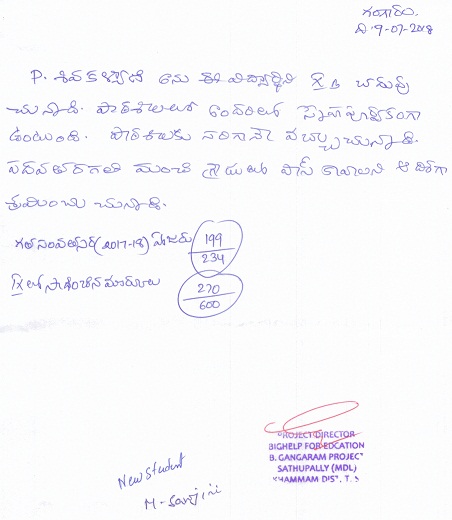 గంగారం.
ది. 9-07-2018
P. శివకళ్యాణి అను ఈ విద్యార్థిని X B చదువు
చున్నాది. పాఠశాలలో అందరితో స్నేహపూర్వకంగా
ఉంటుంది. పాఠశాలకు సరిగానే వచ్చుచున్నాది.
పదవతరగతి మంచి గ్రేడులో పాస్ కావాలని ఆ దిశగా
శ్రమించు చున్నాది.
గతసంవత్సర(2017-18) హాజరు 199
234
IX లో సాధించిన మార్కులు 270
600
PROJECT DIRECTOR
BIGHELP FOR EDCATION
B. GANGARAM PROJECT
SATHUPALLY (MDL)
KHAMMAM DIST, T.S
New Student
M-